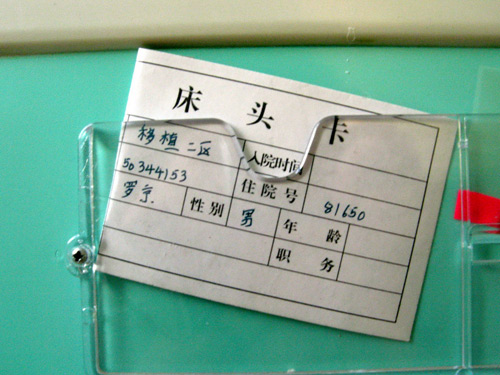 床头卡
移植二区 入院时间
50344153 住院号 81650
罗京 性别 男 年龄
职务